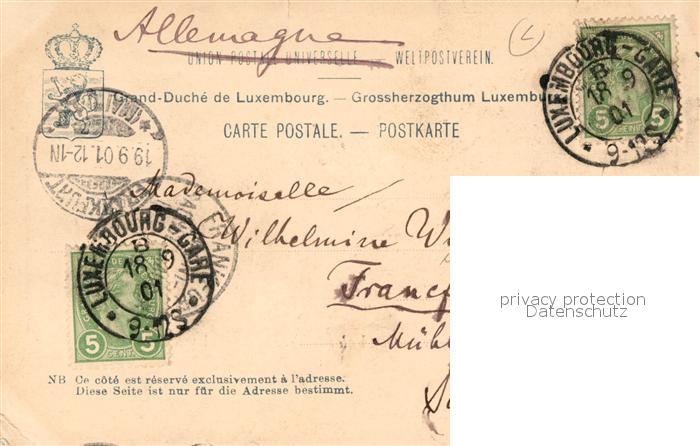 Allemagne
UNION POSTALE UNIVERSELLE. — WELTPOSTVEREIN.
Grand-Duché de Luxembourg. — Grossherzogthum Luxembu
CARTE POSTALE. — POSTKARTE
LUXEMBOURG-GARE
B
18 9
01
9-12S
5 5
CENT.
19.9.01.12-1N
Mademoiselle
Wilhelmine
Francf
LUXEMBOURG-GARE
B
18 9
01
9-12S
5 5
CENT.
privacy protection
Datenschutz
NB Ce côté est réservé exclusivement à l'adresse.
Diese Seite ist nur für die Adresse bestimmt.